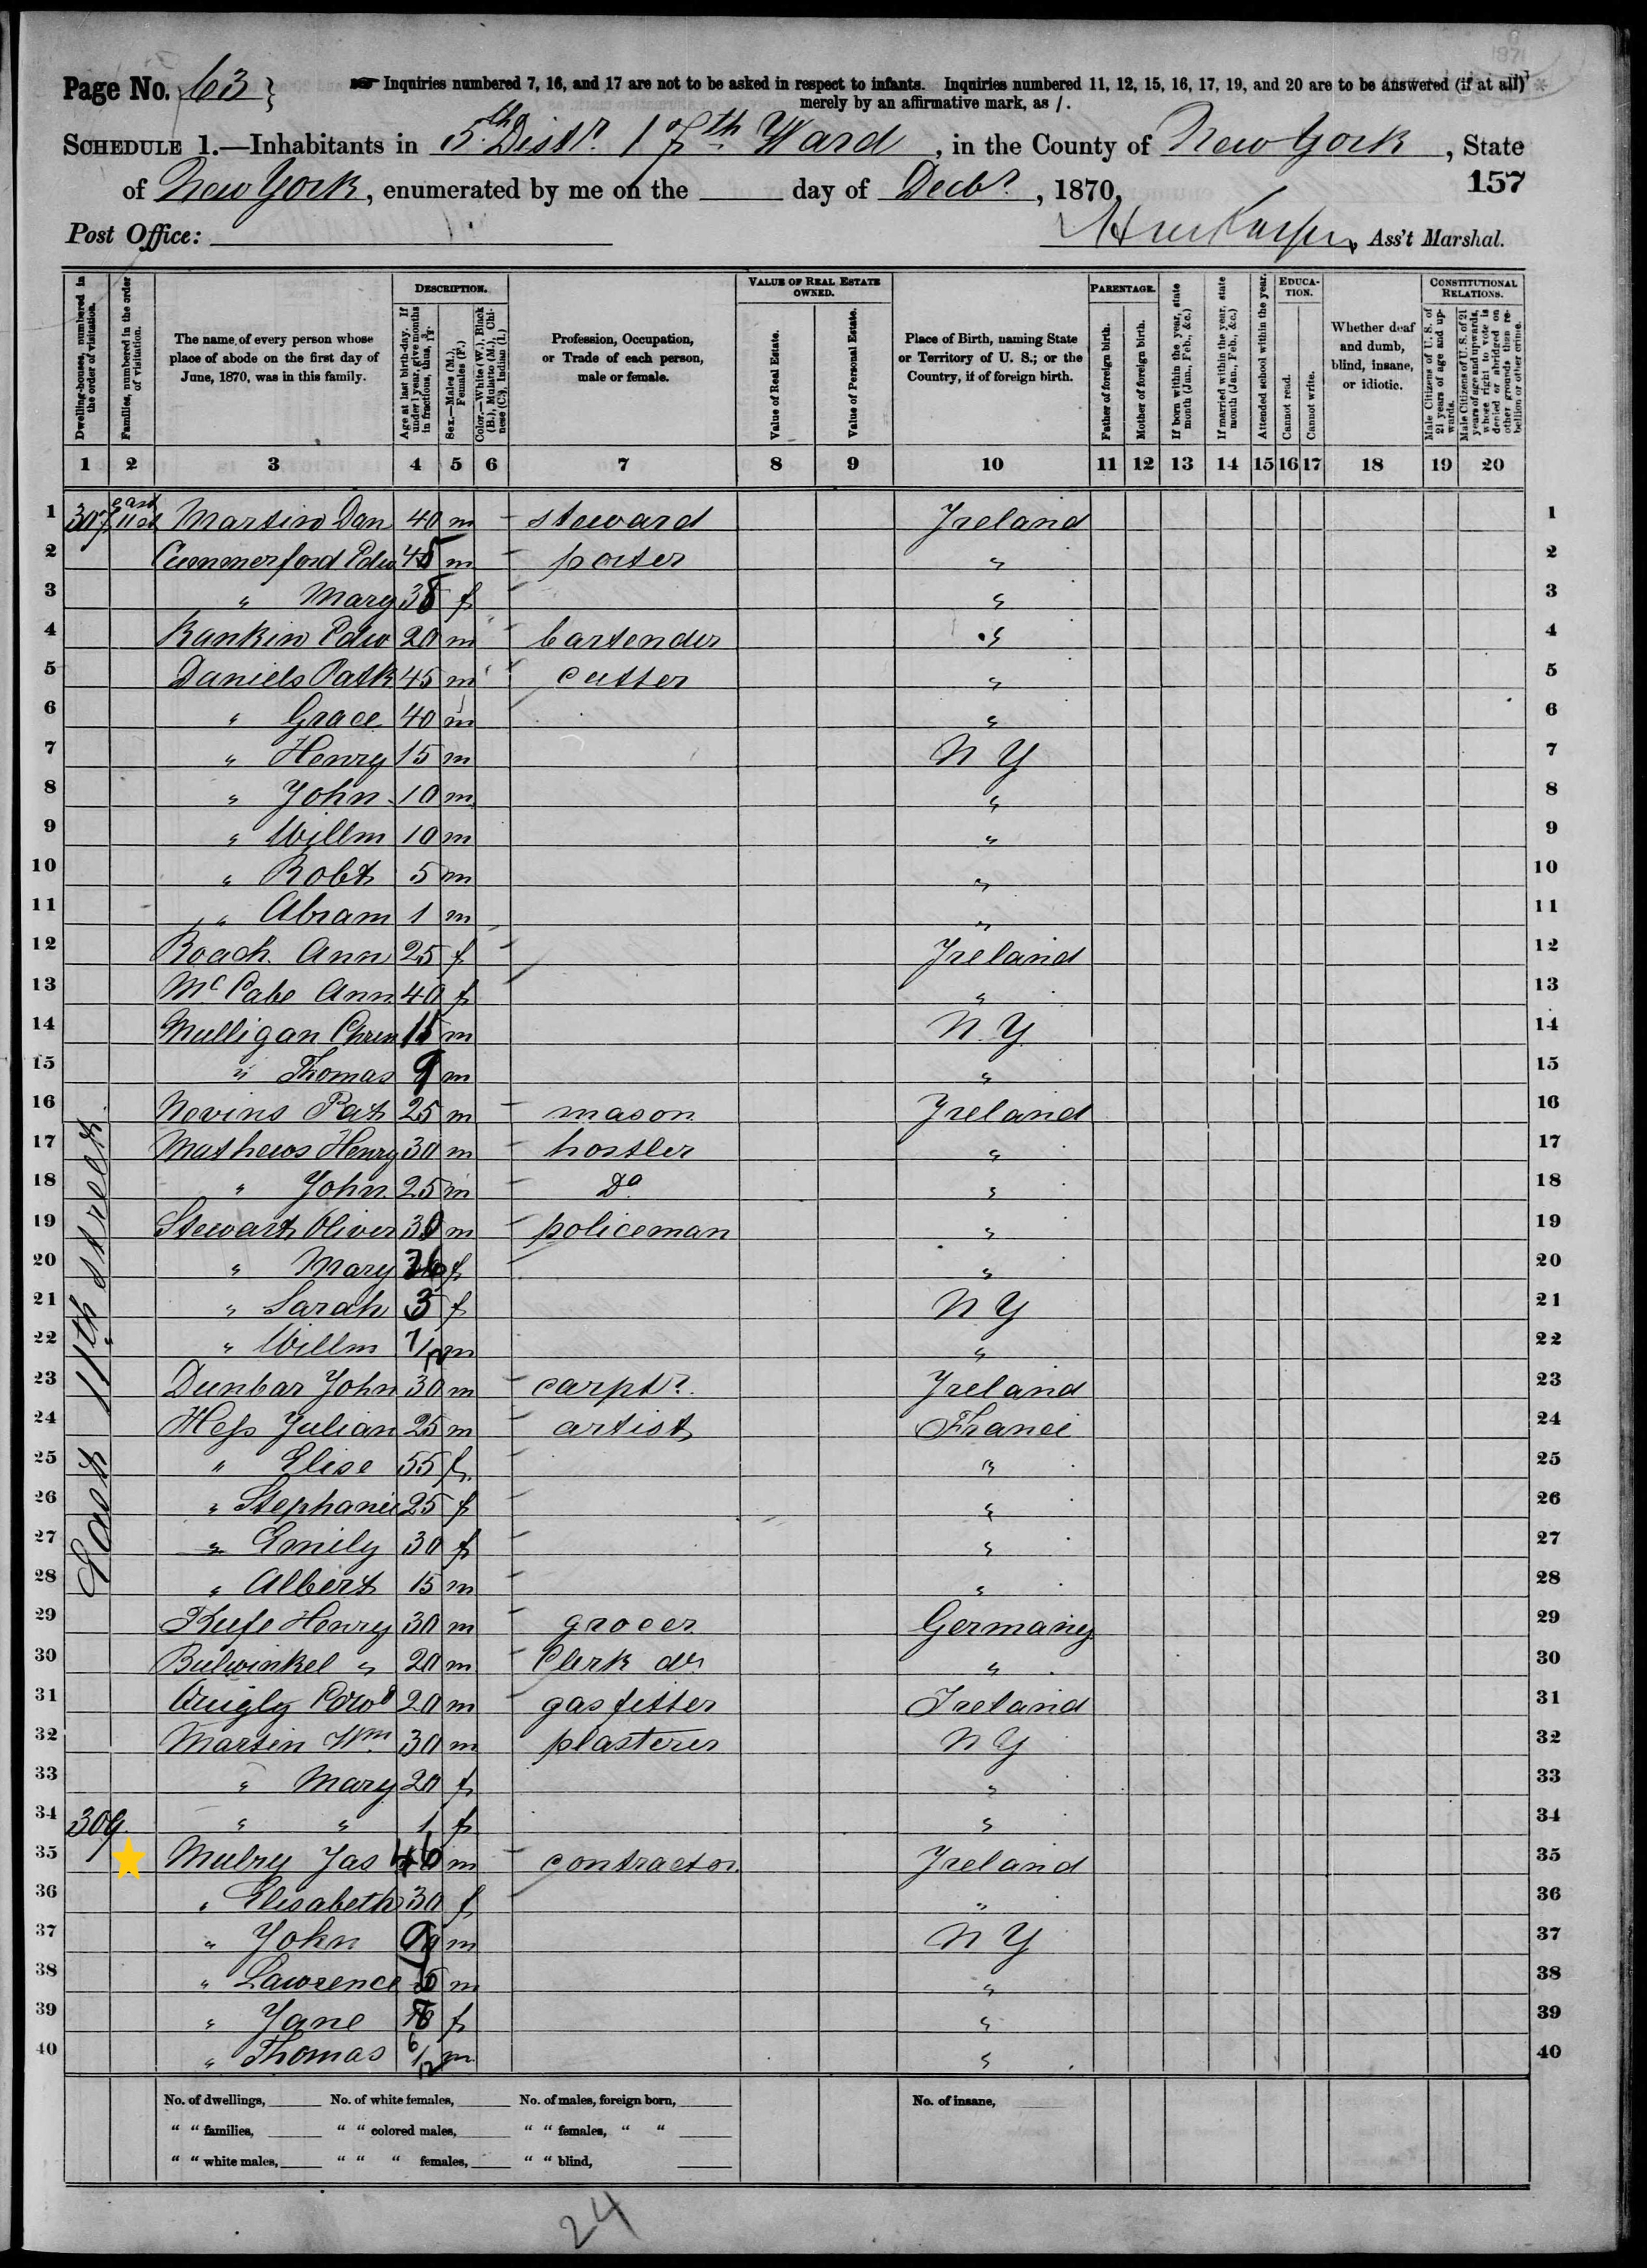 Page No. 63
Inquiries numbered 7, 16, and 17 are not to be asked in respect to infants. Inquiries numbered 11, 12, 15, 16, 17, 19, and 20 are to be answered (if at all)
merely by an affirmative mark, as /.
SCHEDULE 1.—Inhabitants in 5th Distr. 17th Ward, in the County of New York, State
of New York, enumerated by me on the day of Decbr, 1870,
157
Post Office:
Ass't Marshal.
Dwelling-houses, numbered in the order of visitation.
Families, numbered in the order of visitation.
The name of every person whose place of abode on the first day of June, 1870, was in this family.
DESCRIPTION.
Age at last birth-day. If under 1 year, give months in fractions, thus,
Sex.—Males (M.), Females (F.)
Color.—White (W.), Black (B.), Mulatto (M.), Chinese (C.), Indian (I.)
Profession, Occupation, or Trade of each person, male or female.
VALUE OF REAL ESTATE OWNED.
Value of Real Estate.
Value of Personal Estate.
Place of Birth, naming State or Territory of U. S.; or the Country, if of foreign birth.
PARENTAGE.
Father of foreign birth.
Mother of foreign birth.
If born within the year, state month (Jan., Feb., &c.)
If married within the year, state month (Jan., Feb., &c.)
Attended school within the year.
EDUCATION.
Cannot read.
Cannot write.
Whether deaf and dumb, blind, insane, or idiotic.
CONSTITUTIONAL RELATIONS.
Male Citizens of U. S. of 21 years of age and upwards.
Male Citizens of U. S. of 21 years of age and upwards, whose right to vote is denied or abridged on other grounds than rebellion or other crime.
1 2 3 4 5 6 7 8 9 10 11 12 13 14 15 16 17 18 19 20
1 307 east 11 st Martin Dan 40 m steward Ireland 1
2 Cummerford Edw 45 m porter " 2
3 " Mary 38 f " 3
4 Rankin Edw 20 m bartender " 4
5 Daniels Patk 45 m cutter " 5
6 " Grace 40 m " 6
7 " Henry 15 m N Y 7
8 " John 10 m " 8
9 " Willm 10 m " 9
10 " Robt 5 m " 10
11 " Abram 1 m " 11
12 Roach Ann 25 f Ireland 12
13 McCabe Ann 40 f " 13
14 Mulligan 15 m N.Y. 14
15 " Thomas 9 m " 15
16 Nevins Pat 25 m mason Ireland 16
17 Mathews Henry 30 m hostler " 17
18 " John 25 m Do " 18
19 Stewart Oliver 30 m policeman " 19
20 " Mary f " 20
21 " Sarah 3 f N Y 21
22 " Willm 7/12 m " 22
23 Dunbar John 30 m carptr. Ireland 23
24 Hess Julian 25 m artist France 24
25 " Elise 55 f " 25
26 " Stephanie 25 f " 26
27 " Emily 30 f " 27
28 " Albert 15 m " 28
29 Henry 30 m grocer Germany 29
30 Bulwinkel " 20 m Clerk do " 30
31 Quigly Edwd 20 m gas fitter Ireland 31
32 Martin Wm 30 m plasterer N Y 32
33 " Mary 20 f " 33
34 309 " " 1 f " 34
35 Mulry Jas 46 m contractor Ireland 35
36 " Elisabeth 30 f " 36
37 " John m N Y 37
38 " Lawrence m " 38
39 " Jane f " 39
40 " Thomas 6/12 m " 40
East 11th street
No. of dwellings, No. of white females, No. of males, foreign born, No. of insane,
" " families, " " colored males, " " females, " "
" " white males, " " " females, " " blind,
24